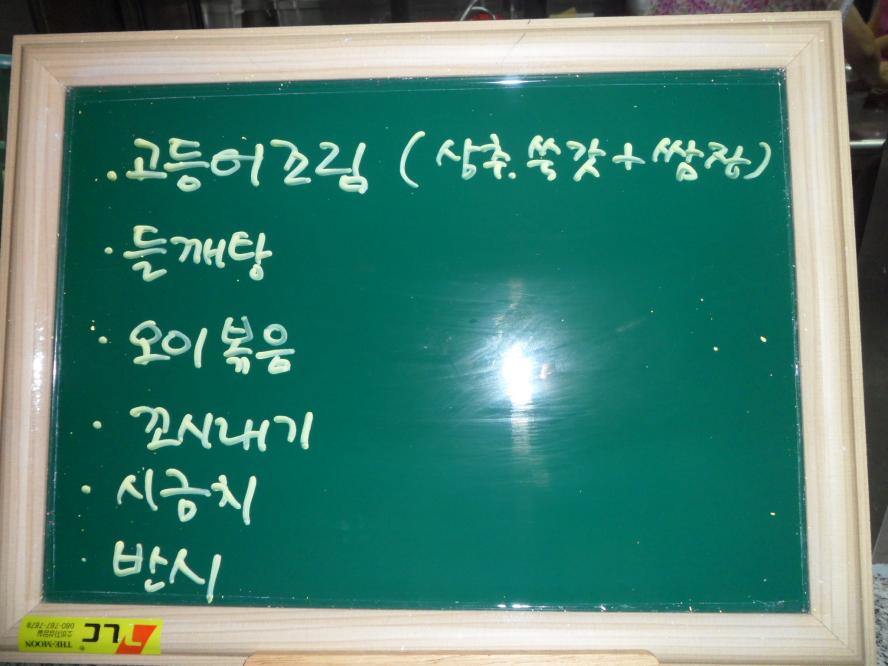 · 고등어조림 (상추.쑥갓+쌈장)
· 들깨탕
· 오이볶음
· 꼬시래기
· 시금치
· 반시
THE-MOON
080-767-7878